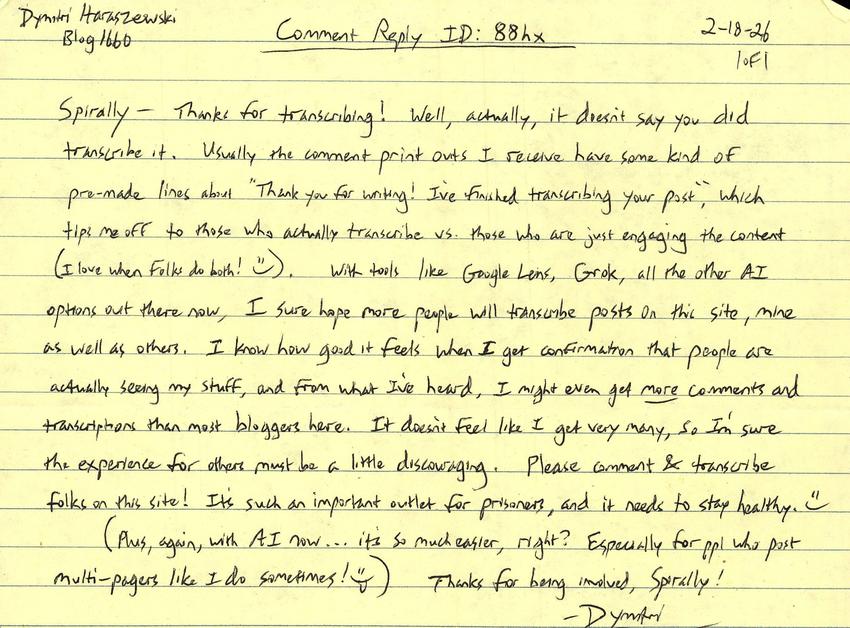 Dymitri Haraszewski
Blog 1660
Comment Reply ID: 88hx
2-18-26
1 of 1
Spirally — Thanks for transcribing! Well, actually, it doesn't say you did
transcribe it. Usually the comment print outs I receive have some kind of
pre-made lines about "Thank you for writing! I've finished transcribing your post", which
tips me off to those who actually transcribe vs. those who are just engaging the content
(I love when folks do both! :)). With tools like Google Lens, Grok, all the other AI
options out there now, I sure hope more people will transcribe posts on this site, mine
as well as others. I know how good it feels when I get confirmation that people are
actually seeing my stuff, and from what I've heard, I might even get more comments and
transcriptions than most bloggers here. It doesn't feel like I get very many, so I'm sure
the experience for others must be a little discouraging. Please comment & transcribe
folks on this site! It's such an important outlet for prisoners, and it needs to stay healthy. :)
(Plus, again, with AI now... it's so much easier, right? Especially for ppl who post
multi-pagers like I do sometimes! :P) Thanks for being involved, Spirally!
-Dymitri